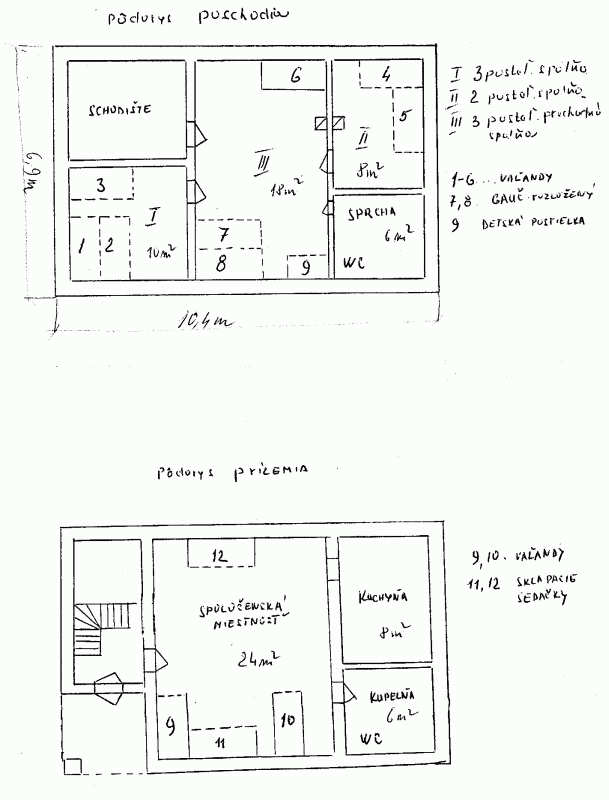 Pôdorys poschodia
SCHODIŠTE
6
4
5
II
8m²
III
18m²
3
I
1
2
10m²
7
8
9
SPRCHA
6m²
WC
6,9m
10,4m
I 3 posteľ. spálňa
II 2 posteľ. spálňa
III 3 posteľ. priechodná
spálňa
1-6... VAĽANDY
7,8. GAUČ ROZLOŽENÝ
9 DETSKÁ POSTIELKA
Pôdorys prízemia
12
SPOLOČENSKÁ
MIESTNOSŤ
24m²
KUCHYŇA
8m²
9
11
10
KUPEĽŇA
6m²
WC
9,10. VAĽANDY
11,12 SKLAPACIE
SEDAČKY